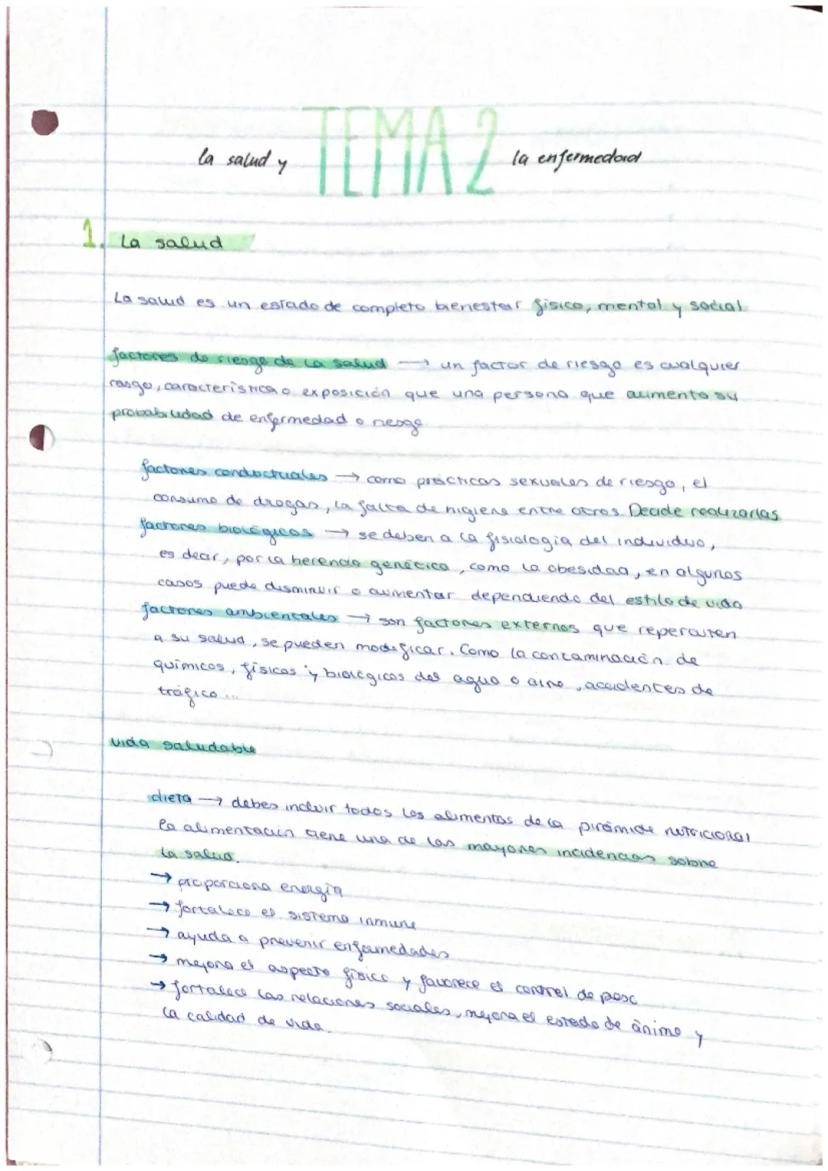 la salud y TEMA 2 la enfermedad
1. La salud
La salud es un estado de completo bienestar físico, mental y social
factores de riesgo de la salud → un factor de riesgo es cualquier
rasgo, característica o exposición que una persona que aumenta su
probabilidad de enfermedad o riesgo
factores conductuales → como prácticas sexuales de riesgo, el
consumo de drogas, la falta de higiene entre otros. Decide realizarlas
factores biológicos → se deben a la fisiología del individuo,
es decir, por la herencia genética, como la obesidad, en algunos
casos puede disminuir o aumentar dependiendo del estilo de vida
factores ambientales → son factores externos que repercuten
a su salud, se pueden modificar. Como la contaminación de
químicos, físicos y biológicos del agua o aire, accidentes de
tráfico...
vida saludable
dieta → debes incluir todos los alimentos de la pirámide nutricional
la alimentación tiene una de las mayores incidencias sobre
la salud.
→ proporciona energía
→ fortalece el sistema inmune
→ ayuda a prevenir enfermedades
→ mejora el aspecto físico y favorece el control de peso
→ fortalece las relaciones sociales, mejora el estado de ánimo y
la calidad de vida.